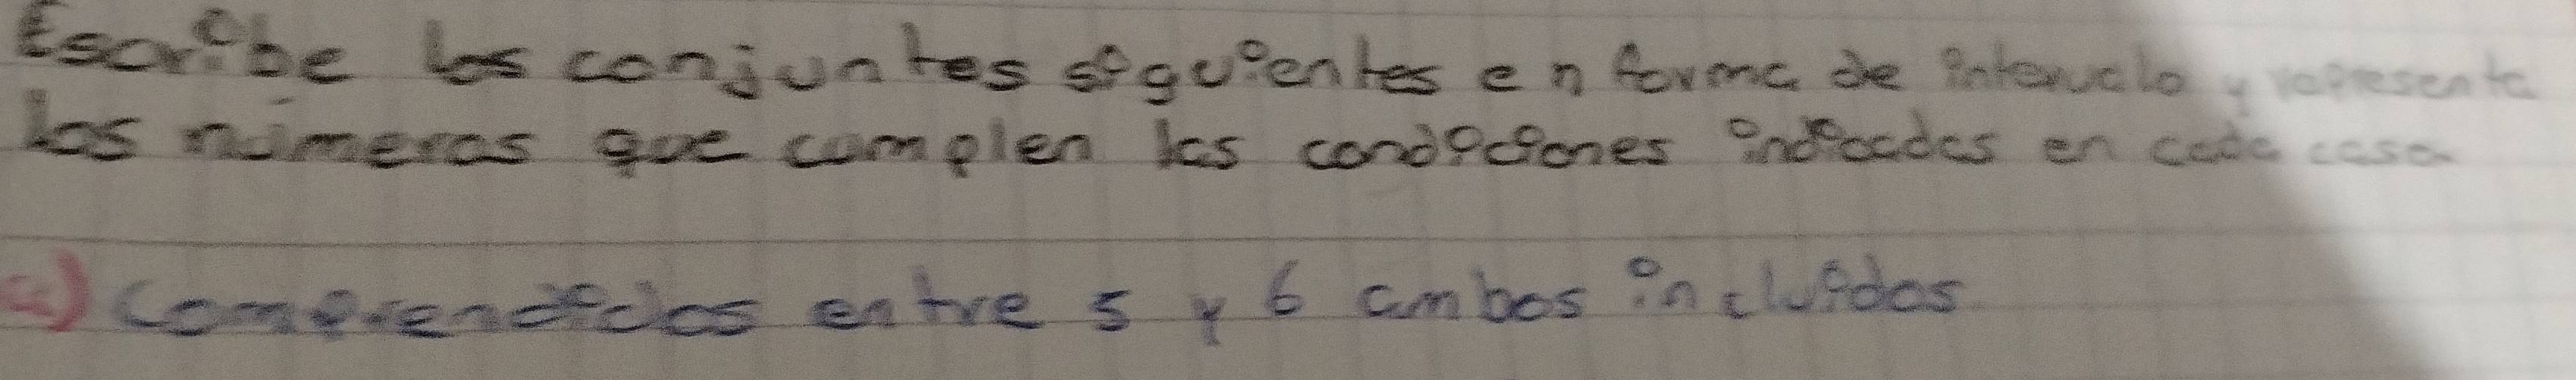 Escribe los conjuntos siguientes en forma de intervalo y representa
los números que cumplen las condiciones indicadas en cada caso
a) Comprendidos entre 5 y 6 ambos incluidos